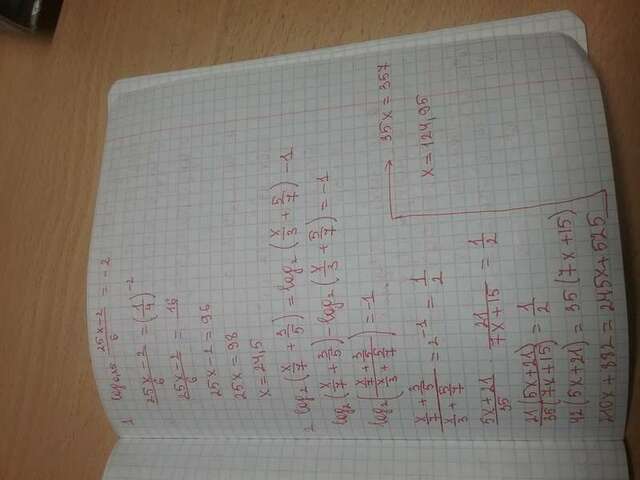 1 log₀,₂₅ (25x-2)/6 = -2
(25x-2)/6 = (1/4)⁻²
(25x-2)/6 = 16
25x-2 = 96
25x = 98
x = 24,5
2 log₂(x/7 + 3/5) = log₂(x/3 + 5/7) -1
log₂(x/7 + 3/5) - log₂(x/3 + 5/7) = -1
log₂((x/7 + 3/5)/(x/3 + 5/7)) = -1
(x/7 + 3/5)/(x/3 + 5/7) = 2⁻¹ = 1/2
(5x+21)/35 · 21/(7x+15) = 1/2
21(5x+21)/35(7x+15) = 1/2
42(5x+21) = 35(7x+15)
210x + 882 = 245x + 525
35x = 357
x = 124,95